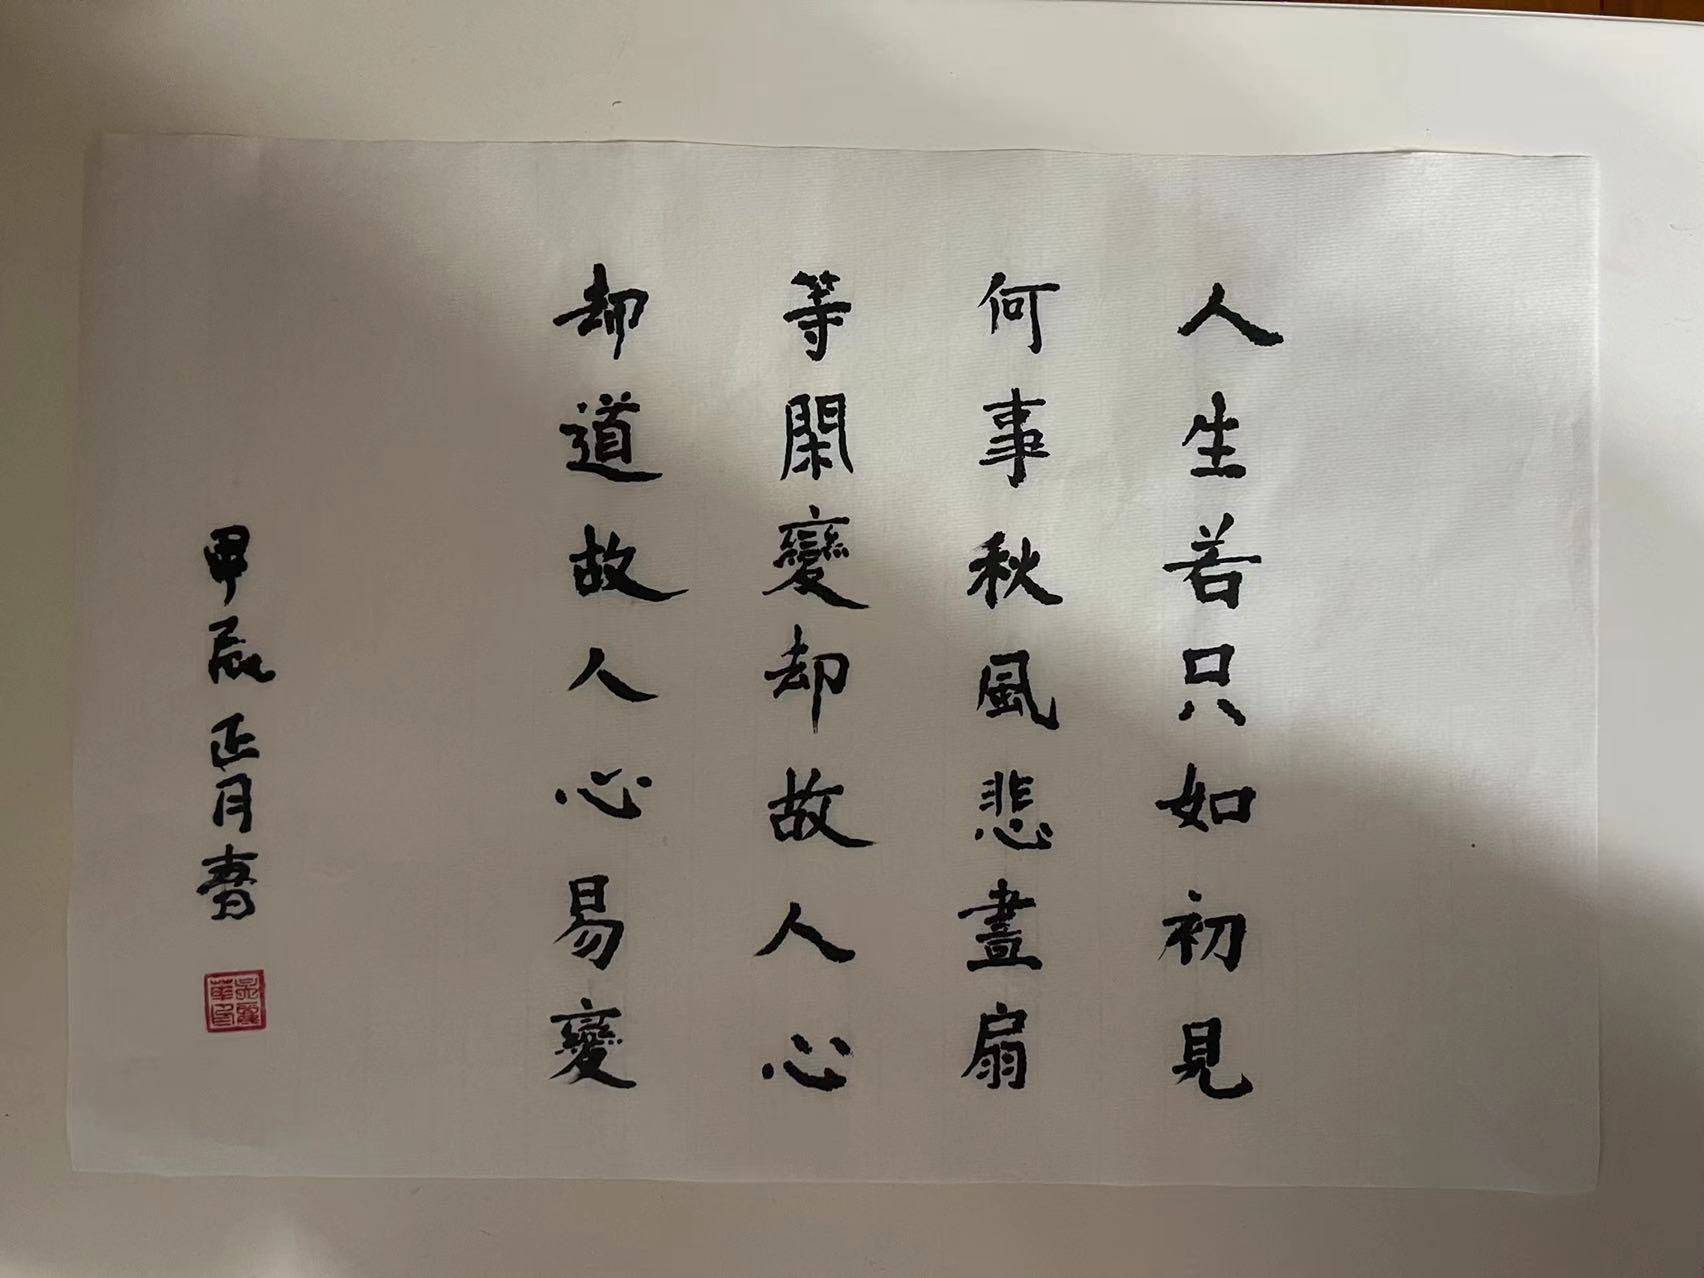 人生若只如初見
何事秋風悲畫扇
等閑變却故人心
却道故人心易變
甲辰正月書
吳麗華印